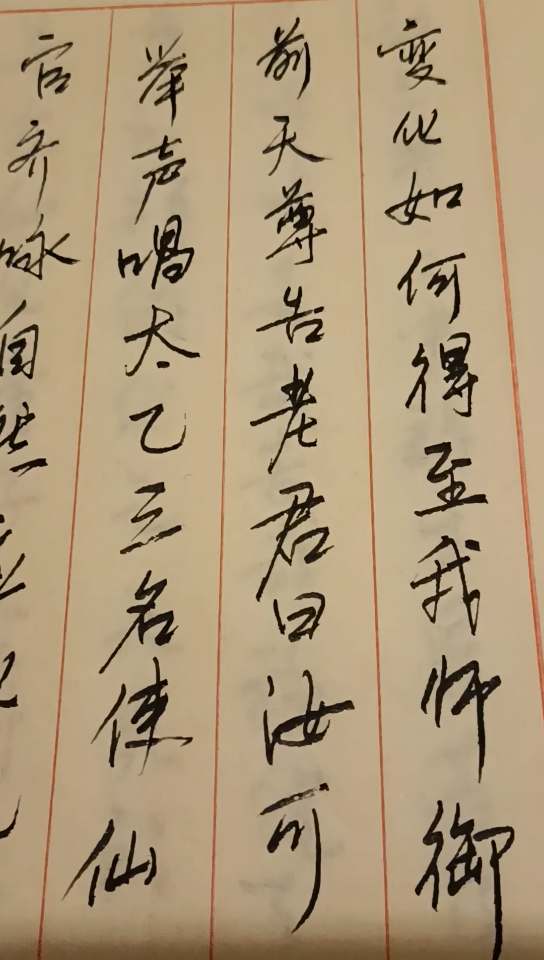 变化如何得至我师御
前天尊告老君曰汝可
举声唱太乙三名使仙
官齐咏自